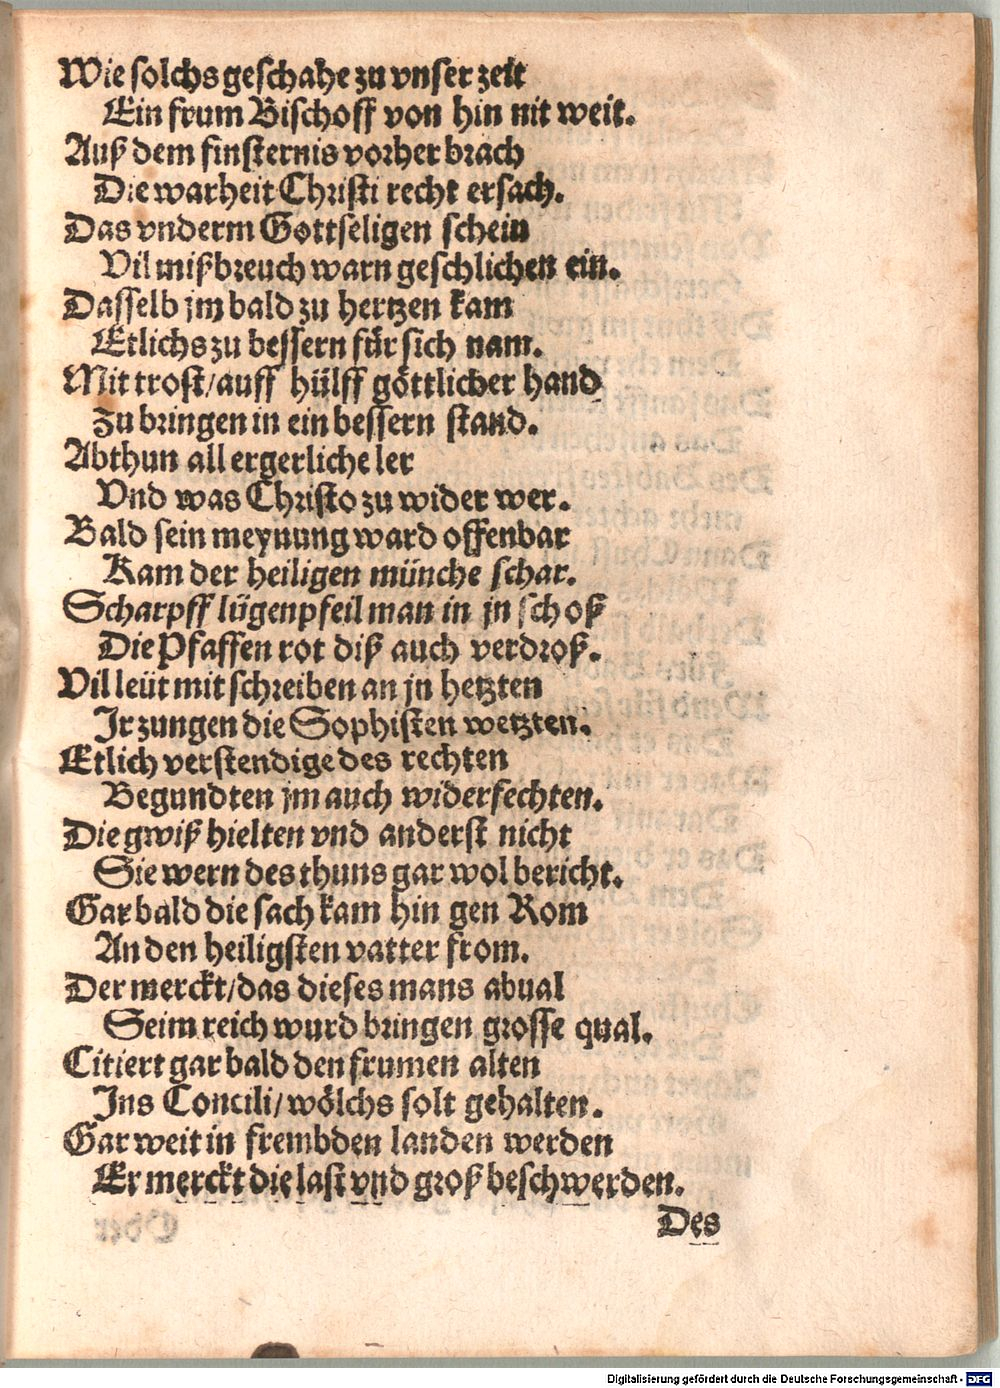 Wie solchs geschahe zu vnser zeit
Ein frum Bischoff von hin nit weit.
Auß dem finsternis vorher brach
Die warheit Christi recht ersach.
Das vnderm Gottseligen schein
Vil mißbreuch warn geschlichen ein.
Dasselb jm bald zu hertzen kam
Etlichs zu bessern für sich nam.
Mit trost/auff hülff göttlicher hand
Zu bringen in ein bessern stand.
Abthun all ergerliche ler
Vnd was Christo zu wider wer.
Bald sein meynung ward offenbar
Kam der heiligen münche schar.
Scharpff lügenpfeil man in jn schoß
Die Pfaffen rot diß auch verdroß.
Vil leüt mit schreiben an jn hetzten
Jr zungen die Sophisten wetzten.
Etlich verstendige des rechten
Begundten jm auch widerfechten.
Die gwiß hielten vnd anderst nicht
Sie wern des thuns gar wol bericht.
Gar bald die sach kam hin gen Rom
An den heiligsten vatter from.
Der merckt/das dieses mans abual
Seim reich wurd bringen grosse qual.
Citiert gar bald den frumen alten
Jns Concili/wölchs solt gehalten.
Gar weit in frembden landen werden
Er merckt die last vnd groß beschwerden.
Des
Digitalisierung gefördert durch die Deutsche Forschungsgemeinschaft - DFG